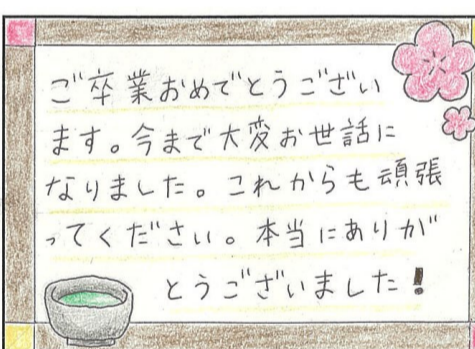 ご卒業おめでとうござい
ます。今まで大変お世話に
なりました。これからも頑張
ってください。本当にありが
とうございました!